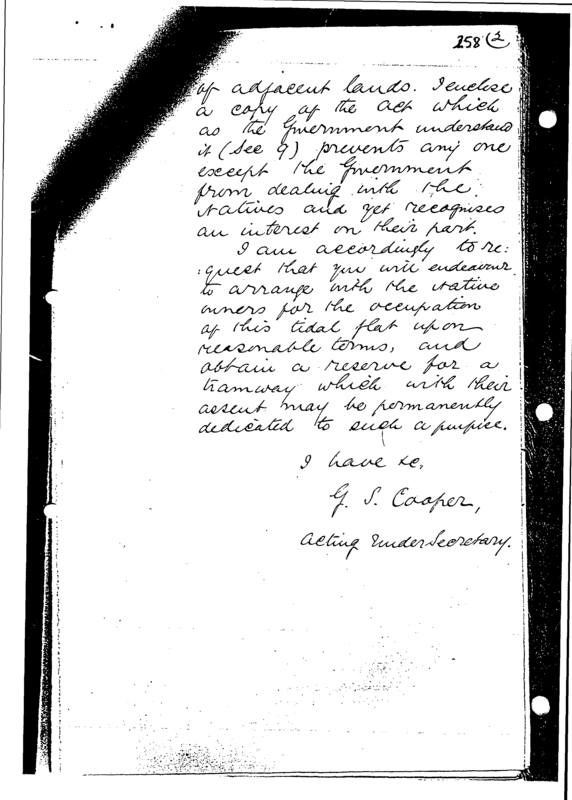 258 (2
of adjacent lands. I enclose
a copy of the Act which
as the Government understand
it (See 9) prevents any one
except the Government
from dealing with the
Natives and yet recognises
an interest on their part.
I am accordingly to re:
:quest that you will endeavour
to arrange with the Native
owners for the occupation
of this tidal flat upon
reasonable terms, and
obtain a reserve for a
tramway which with their
assent may be permanently
dedicated to such a purpose.
I have &c,
G. S. Cooper,
Acting UnderSecretary.